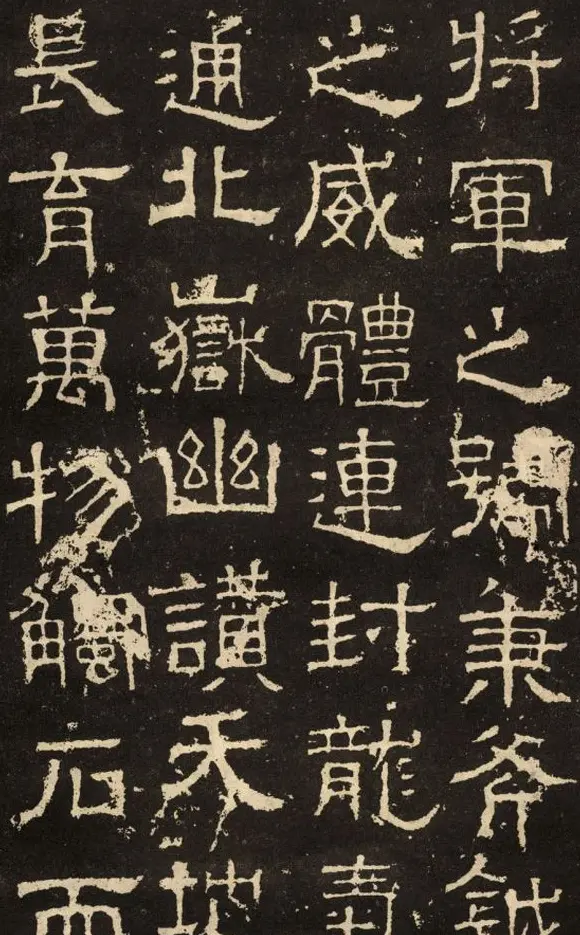 將軍之號秉斧鉞
之威體連封龍氣
通北嶽幽讚天地
長育萬物觸石而